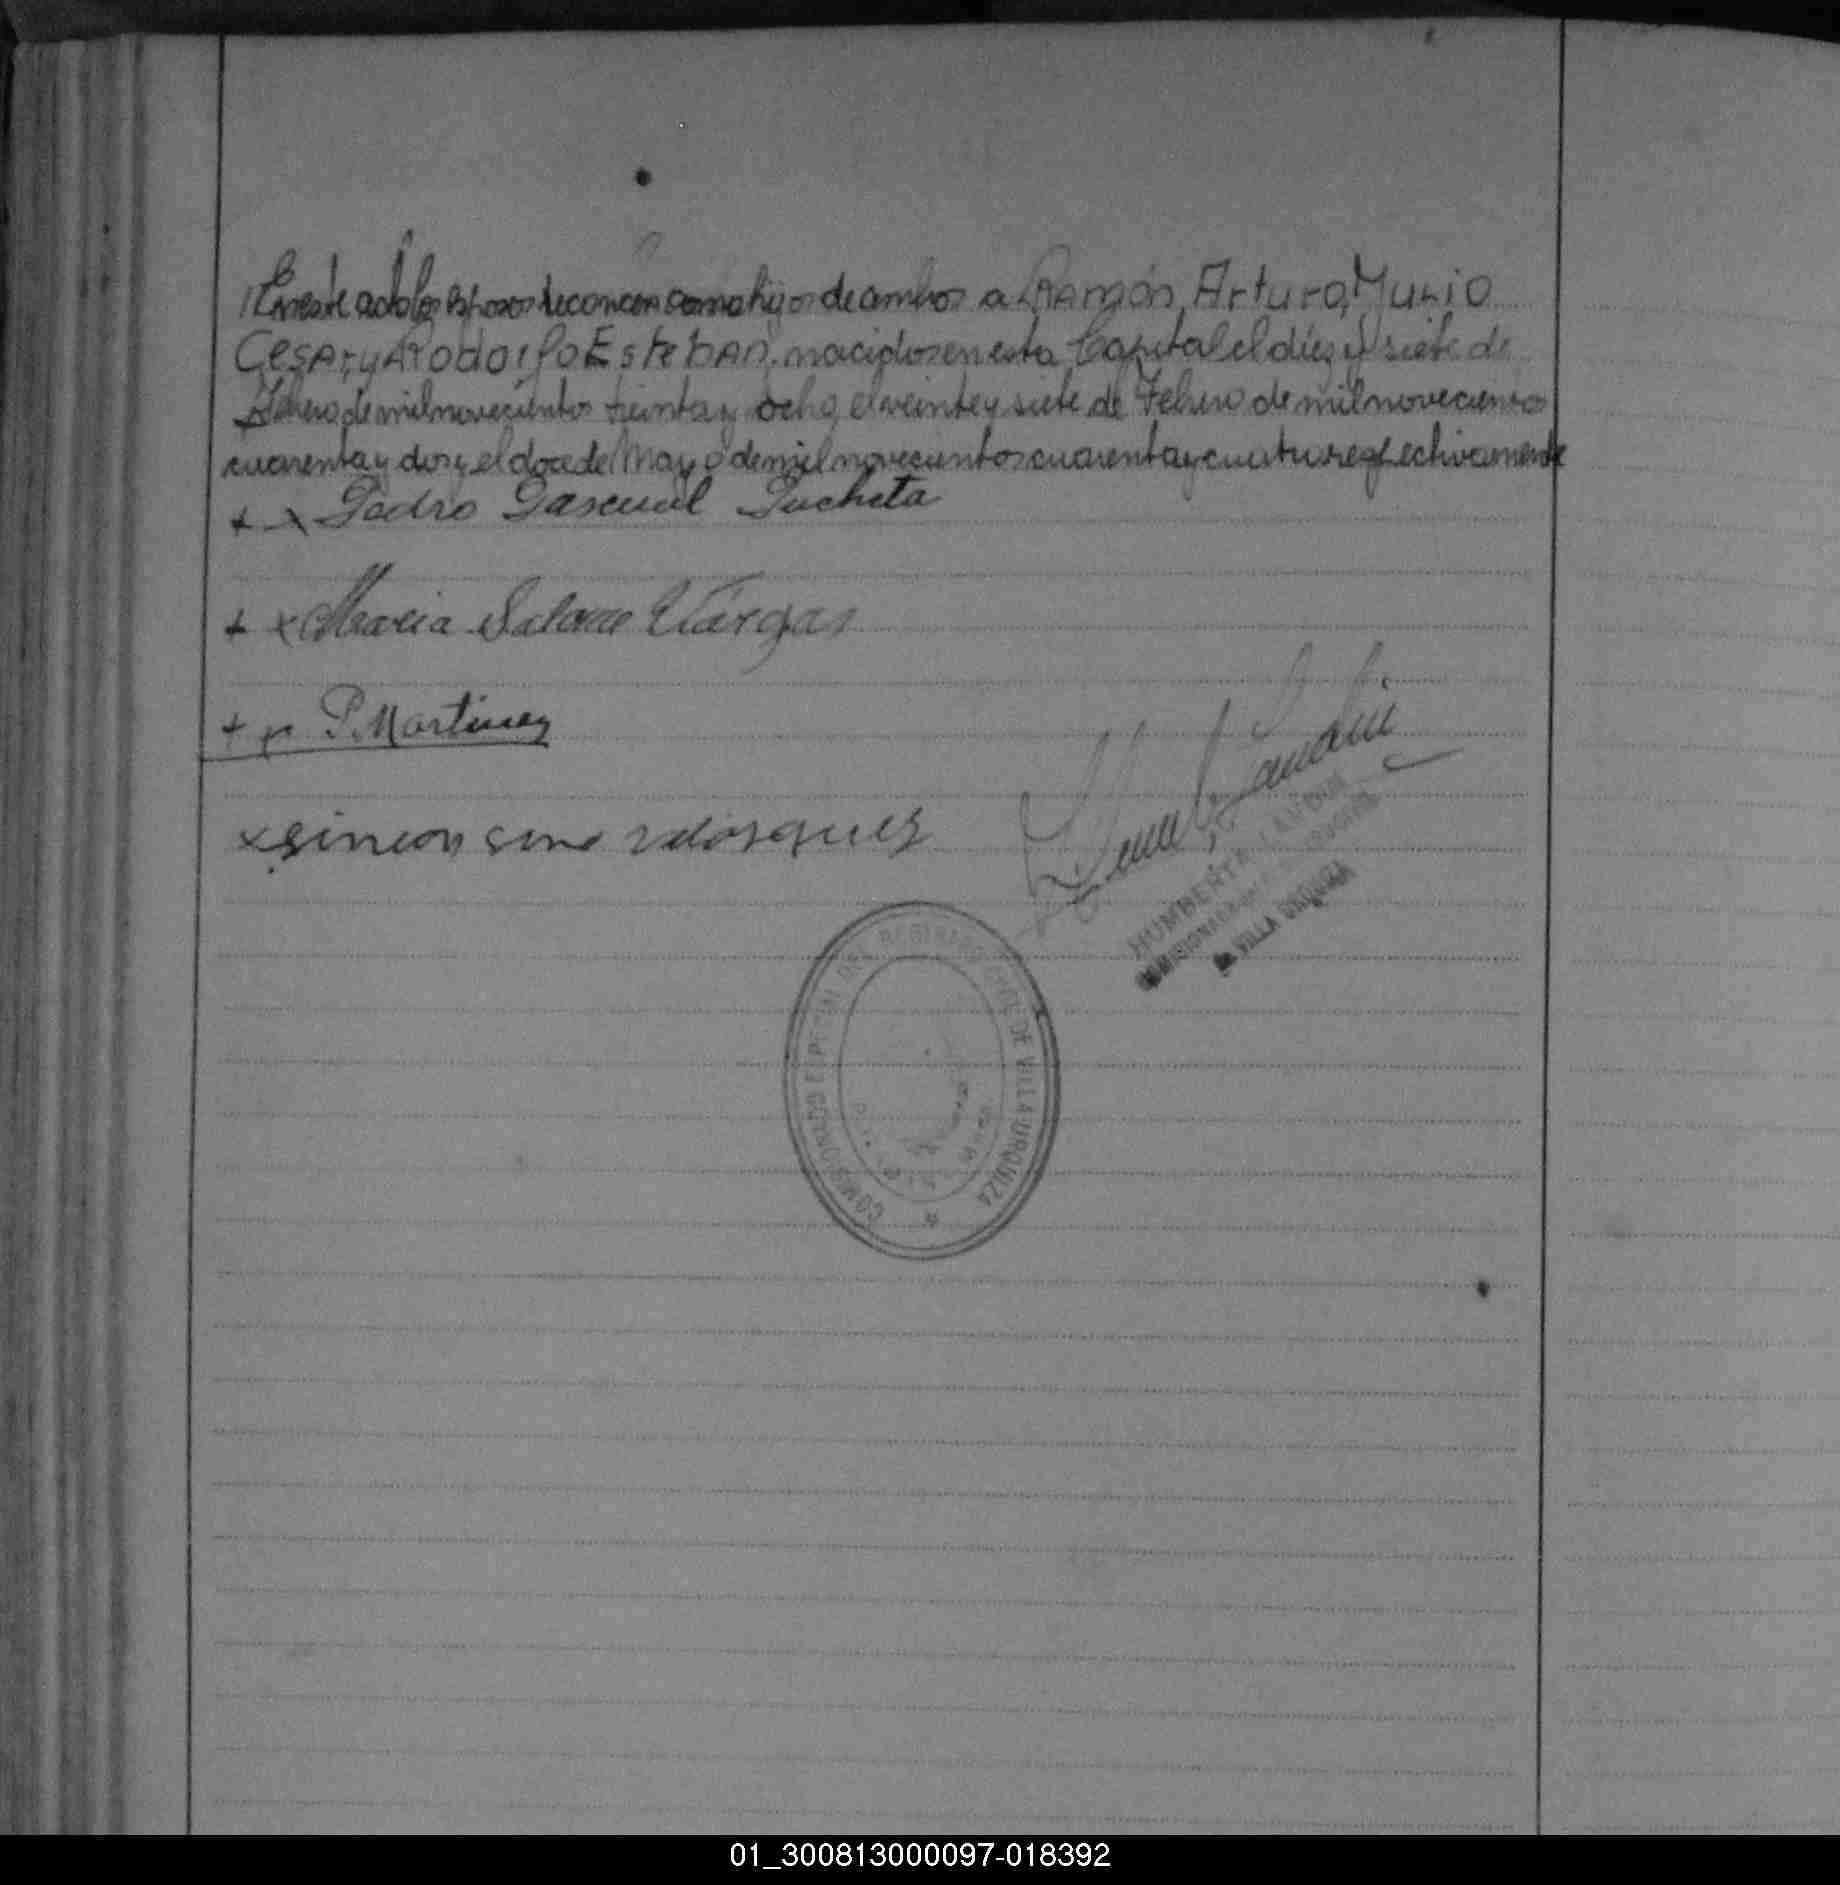 En este acto los esposos reconocen como hijos de ambos a Ramón Arturo, Julio
Cesar, y Rodolfo Esteban, nacidos en esta Capital el diez y siete de
Febrero de mil novecientos treinta y ocho, el veinte y siete de Febrero de mil novecientos
cuarenta y dos y el doce de Mayo de mil novecientos cuarenta y cuatro respectivamente
+ x Pedro Pascual Pucheta
+ x Maria Salome Vargas
+ x P. Martinez
x simeon
HUMBERTO LANDINI
VILLA URQUIZA
COMISIONADO ESPECIAL DEL REGISTRO CIVIL DE VILLA URQUIZA
01_300813000097-018392